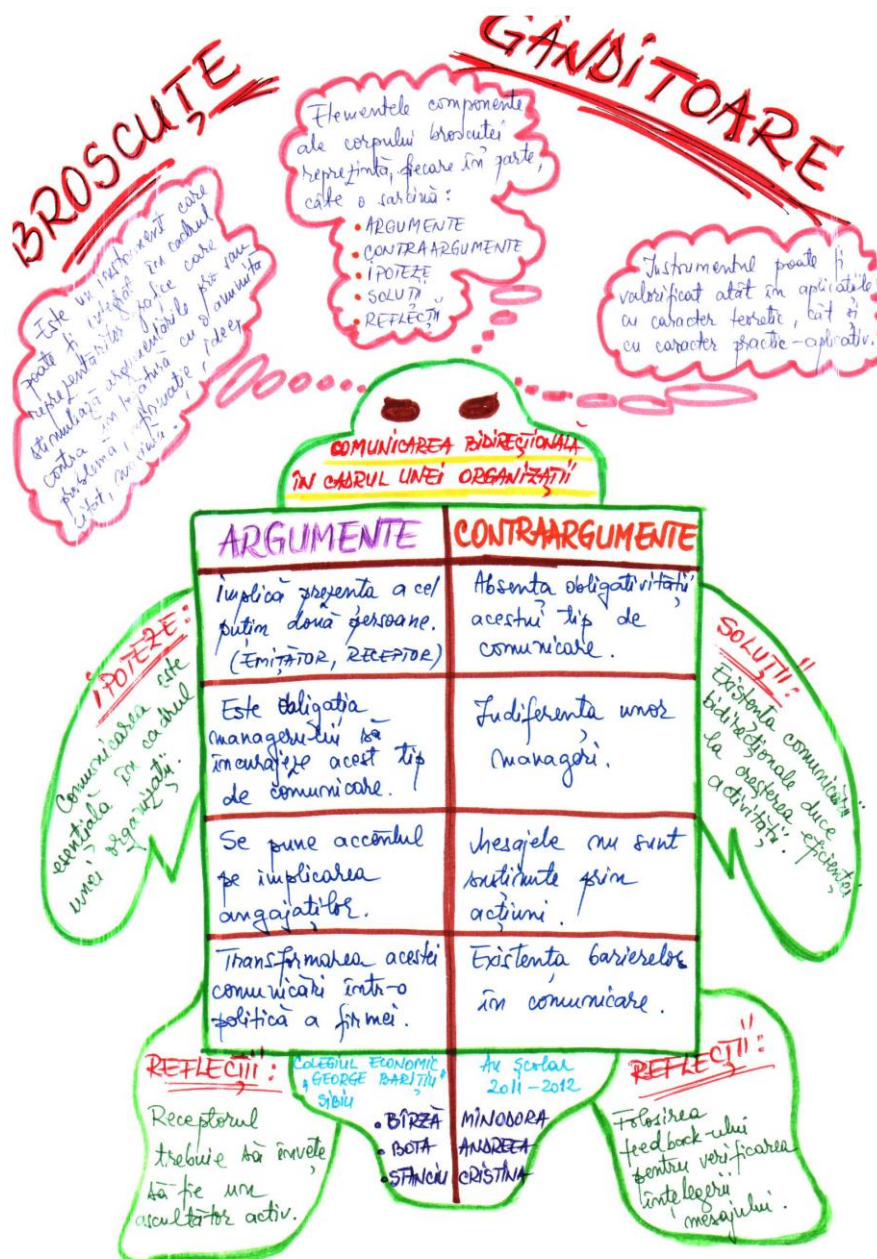 BROSCUȚE GÂNDITOARE
Este un instrument care
poate fi integrat în cadrul
reprezentărilor grafice care
stimulează argumentările pro sau
contra în legătură cu o anumită
problemă, afirmație, idee,
citat, maximă.
Elementele componente
ale corpului broscuței
reprezintă, fiecare în parte,
câte o sarcină:
• ARGUMENTE
• CONTRAARGUMENTE
• IPOTEZE
• SOLUȚII
• REFLECȚII
Instrumentul poate fi
valorificat atât în aplicațiile
cu caracter teoretic, cât și
cu caracter practic-aplicativ.
COMUNICAREA BIDIRECȚIONALĂ
ÎN CADRUL UNEI ORGANIZAȚII
ARGUMENTE
CONTRAARGUMENTE
Implică prezența a cel
puțin două persoane.
(EMIȚĂTOR, RECEPTOR)
Absența obligativității
acestui tip de
comunicare.
Este obligația
managerului să
încurajeze acest tip
de comunicare.
Indiferența unor
manageri.
Se pune accentul
pe implicarea
angajaților.
Mesajele nu sunt
susținute prin
acțiuni.
Transformarea acestei
comunicări într-o
politică a firmei.
Existența barierelor
în comunicare.
IPOTEZE:
Comunicarea este
esențială în cadrul
unei organizații.
SOLUȚII:
Existența comunicării
bidirecționale duce
la creșterea eficienței
activității.
REFLECȚII:
Receptorul
trebuie să învețe
să fie un
ascultător activ.
COLEGIUL ECONOMIC
"GEORGE BARIȚIU"
SIBIU
An școlar
2011-2012
• BÎRZĂ MINODORA
• BOTA ANDREEA
• STANCIU CRISTINA
REFLECȚII:
Folosirea
feedback-ului
pentru verificarea
înțelegerii
mesajului.